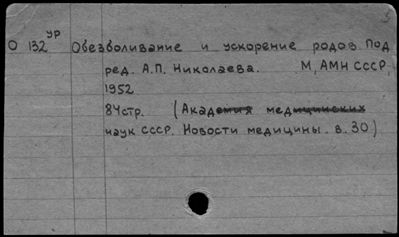 О 132 УР Обезболивание и ускорение родов. Под
ред. А.П. Николаева. М, АМН СССР,
1952
84стр. (Академия медицинских
наук СССР. Новости медицины. в. 30)